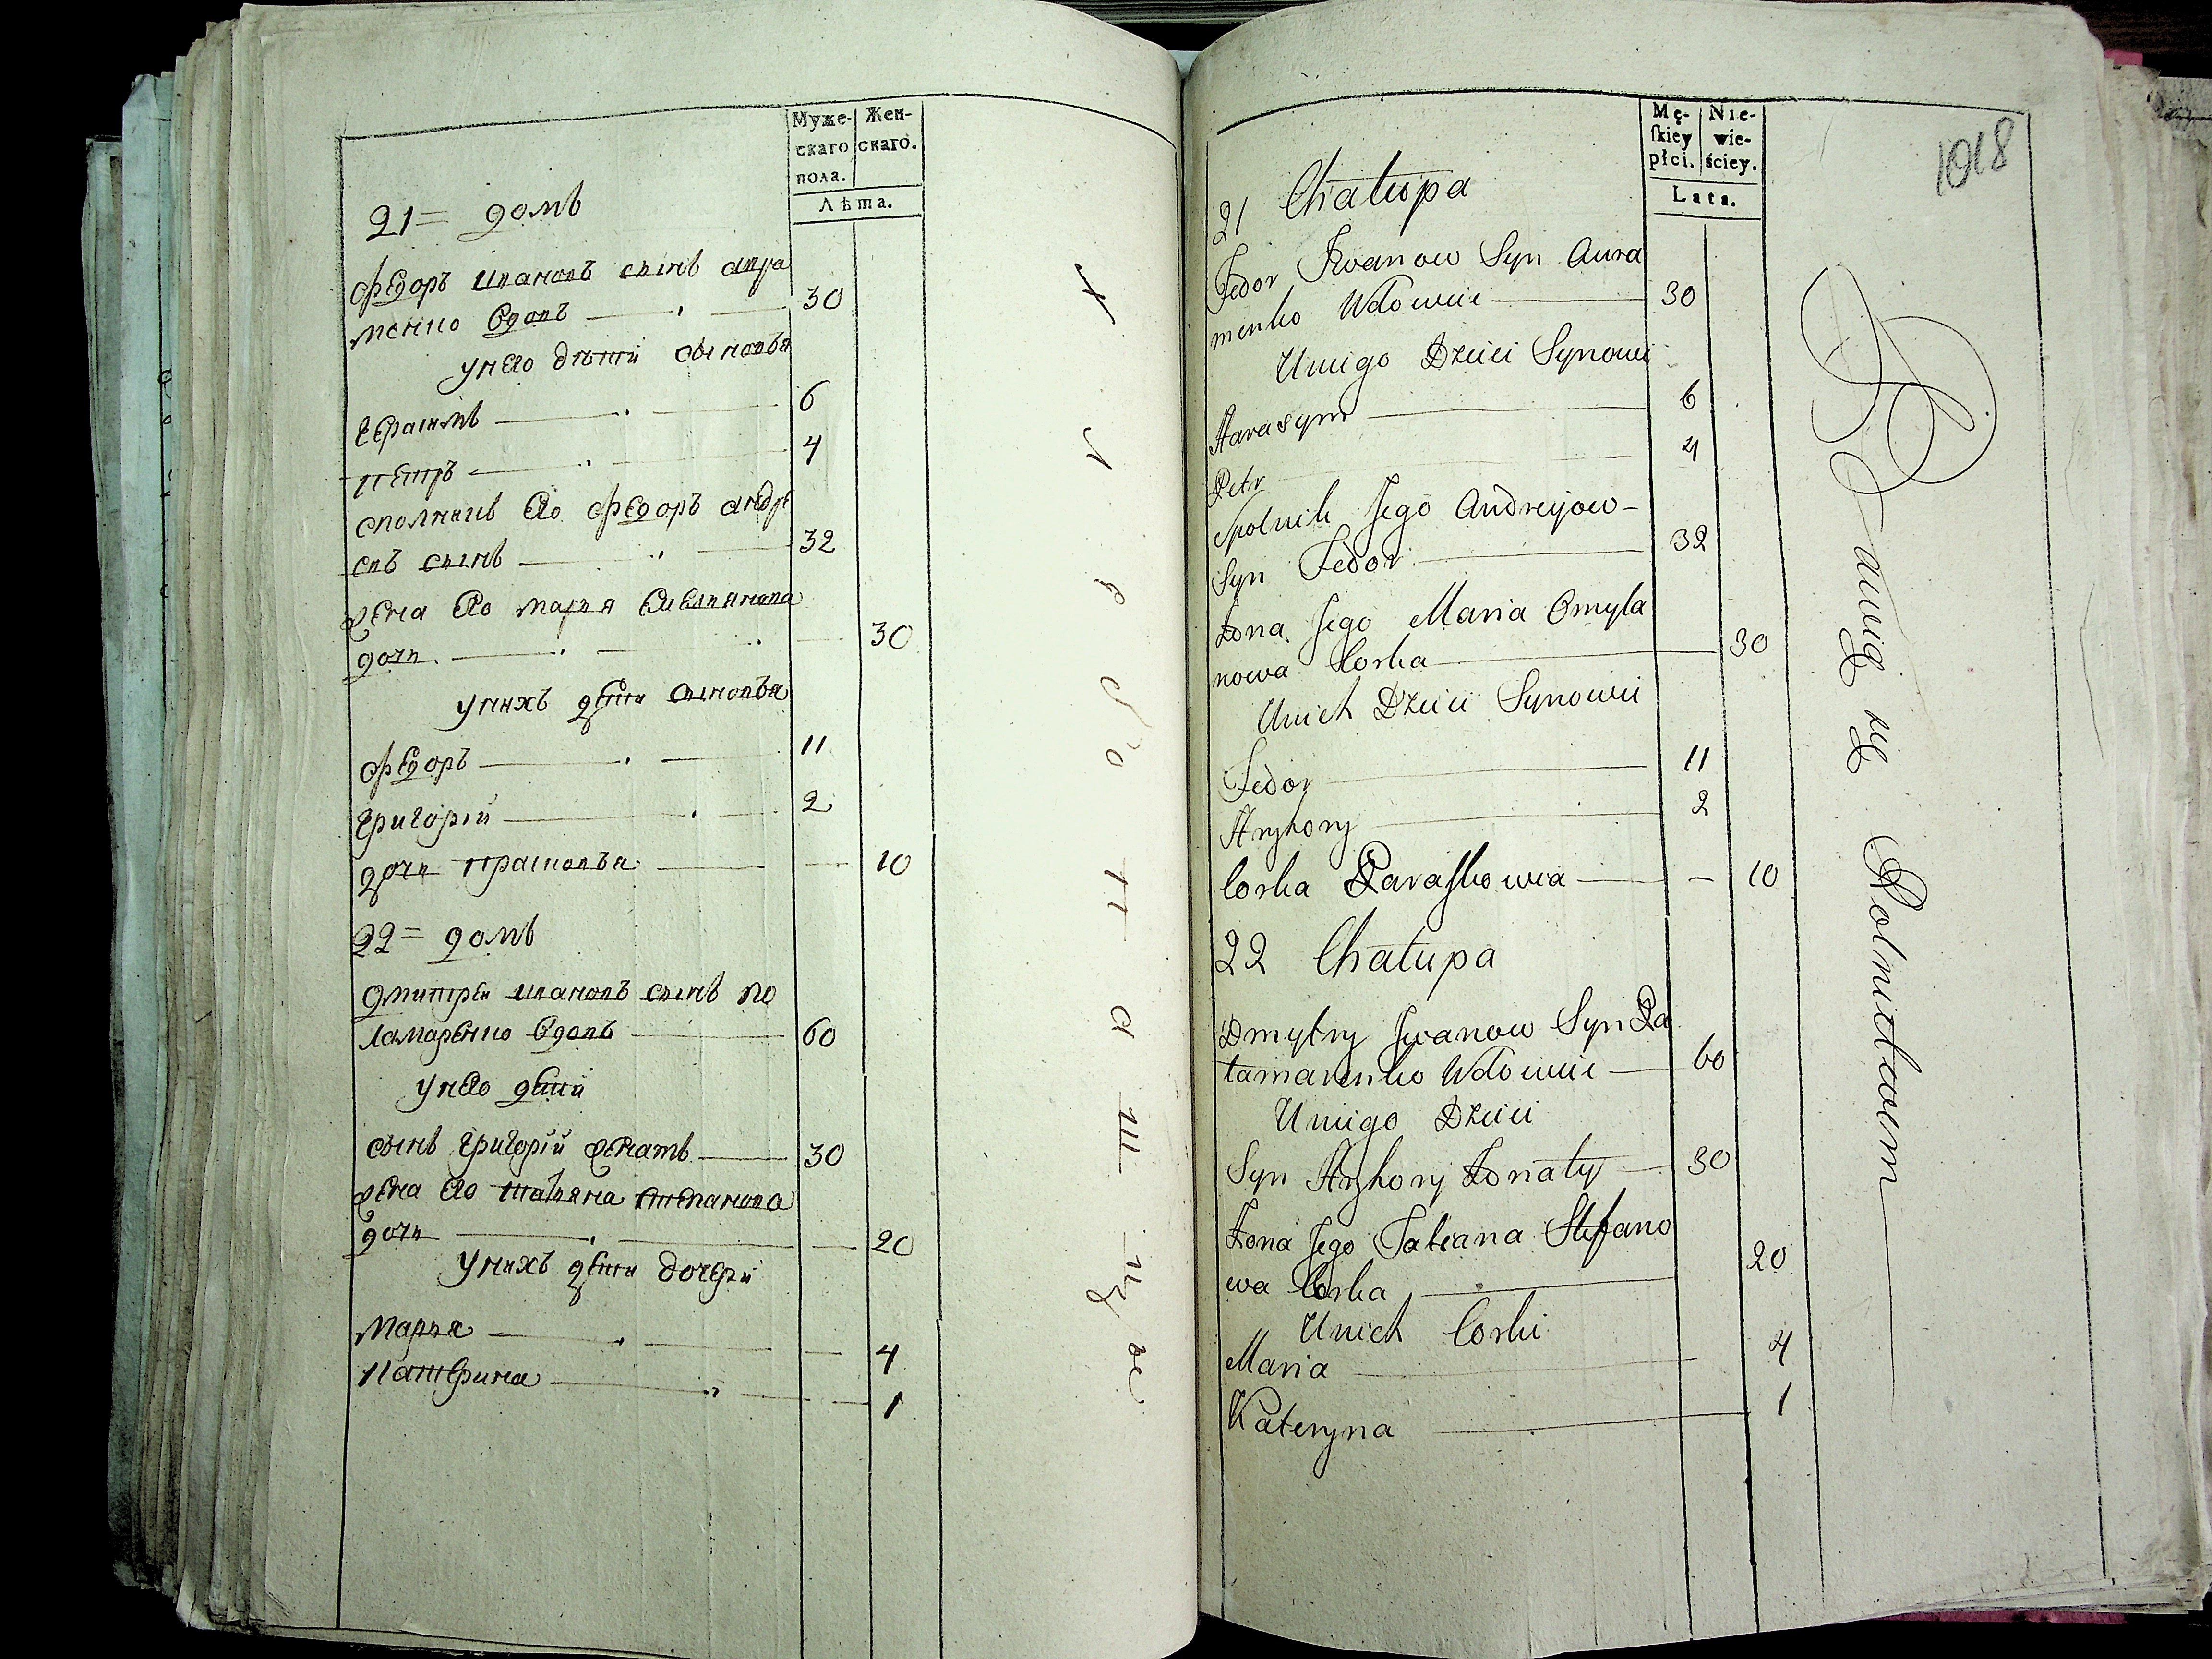 Муже-
скаго
пола.
Жен-
скаго.
Лѣта.
21= домъ
Федоръ Ивановъ сынъ Авра
менко вдовъ 30
у него дѣти сыновья
Герасимъ 6
Петръ 4
Сполникъ его Федоръ Андре
евъ сынъ 32
жена его Марья Емельянова
дочь 30
у нихъ дѣти сыновья
Федоръ 11
Григорій 2
дочь Прасковья 10
22= домъ
Дмитрей Ивановъ сынъ По
ламаренко вдовъ 60
у него дѣти
сынъ Григорій женатъ 30
жена его Татьяна Степанова
дочь 20
у нихъ дѣти дочери
Марья 4
Катерина 1
Mę-
ſkiey
płci.
Nie-
wie-
ściey.
Lata.
1018
21 Chałupa
Fedor Iwanow Syn Awra
menko Wdowiec 30
U niego Dzieci Synowie
Harasym 6
Petr 4
Spolnik Jego Andreyow-
Syn Fedor 32
Żona Jego Maria Omyla
nowa Corka 30
U nich Dzieci Synowie
Fedor 11
Hryhory 2
Corka Paraſkowia 10
22 Chałupa
Dmytry Iwanow Syn Pa
lamarenko Wdowiec 60
U niego Dzieci
Syn Hryhory Żonaty 30
Żona Jego Tatiana Stefano
wa Corka 20
U nich Corki
Maria 4
Kateryna 1
Bawią się Rolnictwem